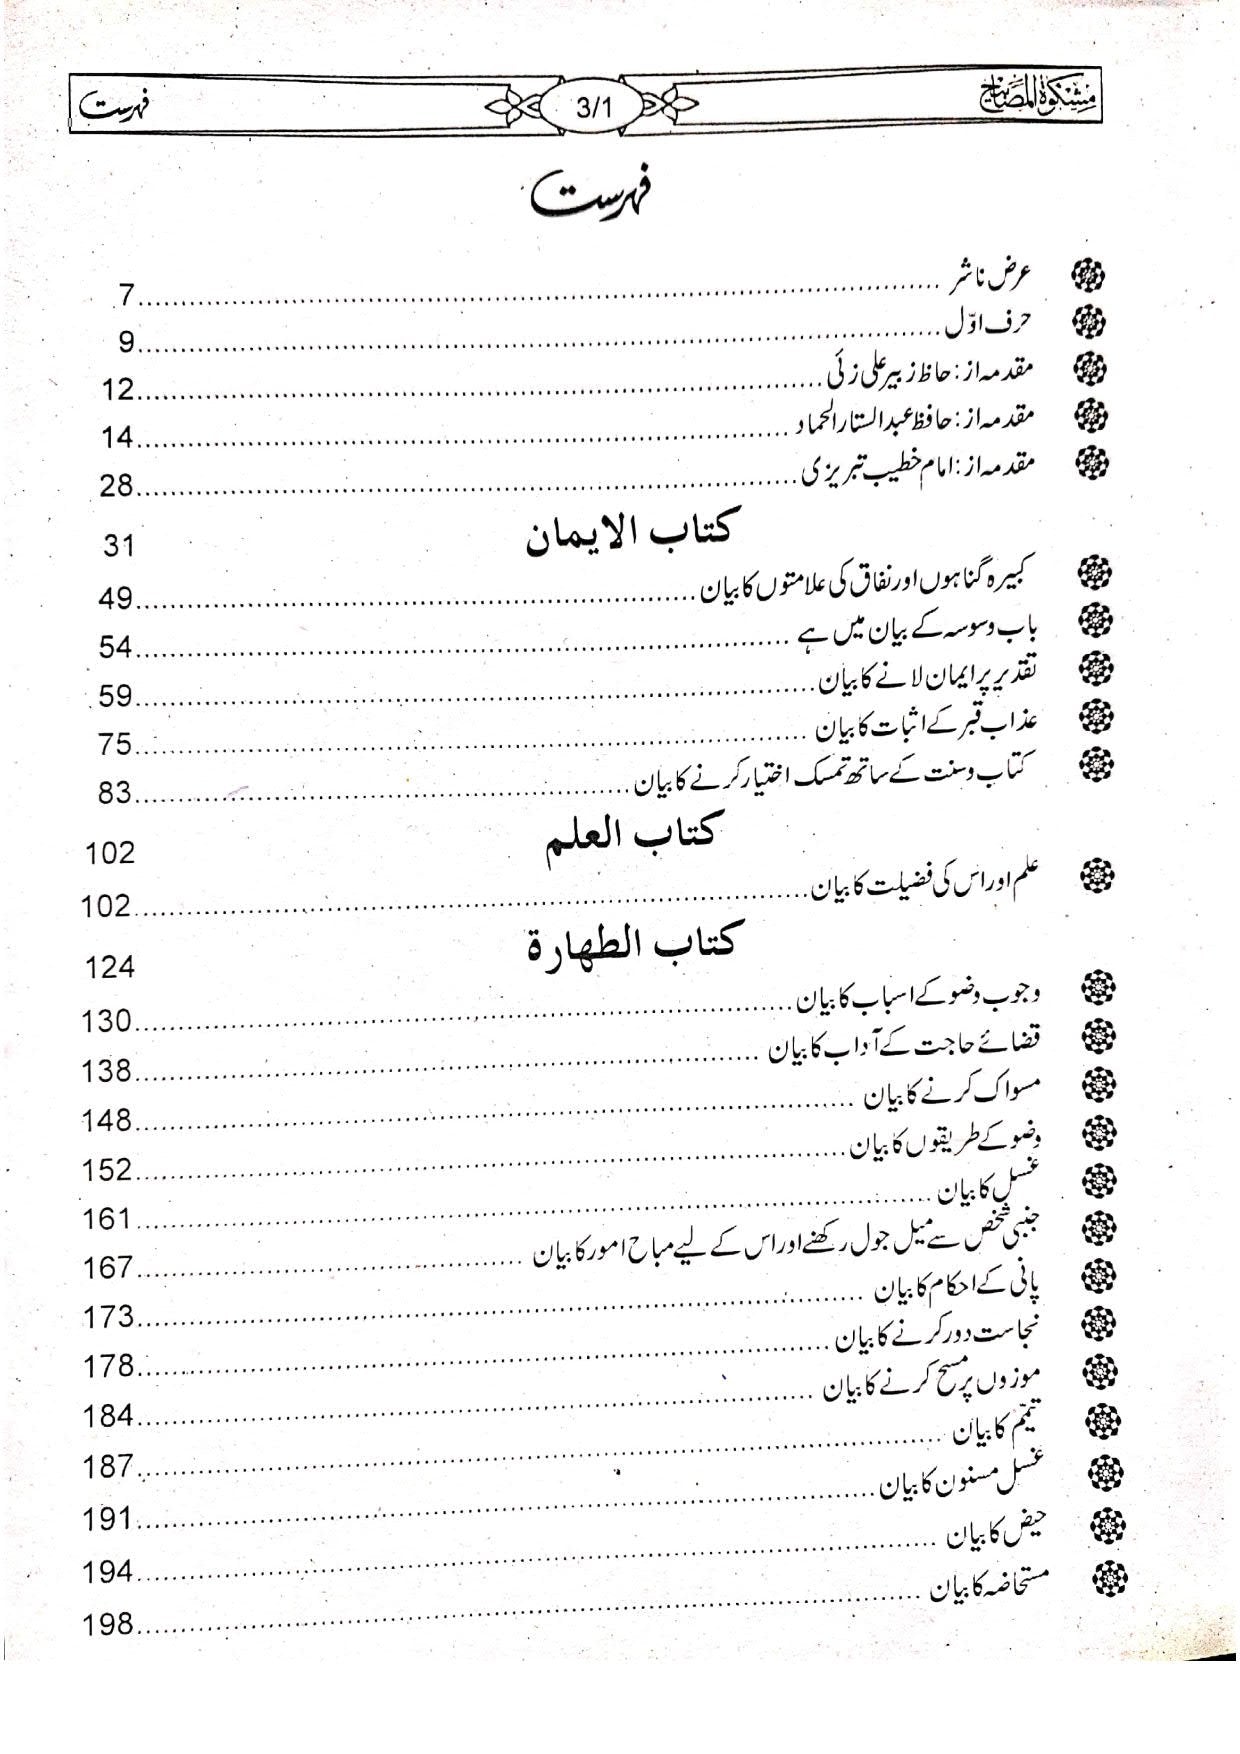 مشكوة المصابيح 3/1 فہرست
فہرست
عرض ناشر ........ 7
حرف اوّل ........ 9
مقدمہ از: حافظ زبیر علی زئی ........ 12
مقدمہ از: حافظ عبدالستار الحماد ........ 14
مقدمہ از: امام خطیب تبریزی ........ 28
كتاب الايمان 31
کبیرہ گناہوں اور نفاق کی علامتوں کا بیان ........ 49
باب وسوسہ کے بیان میں ہے ........ 54
تقدیر پر ایمان لانے کا بیان ........ 59
عذاب قبر کے اثبات کا بیان ........ 75
کتاب و سنت کے ساتھ تمسک اختیار کرنے کا بیان ........ 83
كتاب العلم 102
علم اور اس کی فضیلت کا بیان ........ 102
كتاب الطهارة 124
وجوب وضو کے اسباب کا بیان ........ 130
قضائے حاجت کے آداب کا بیان ........ 138
مسواک کرنے کا بیان ........ 148
وضو کے طریقوں کا بیان ........ 152
غسل کا بیان ........ 161
جنبی شخص سے میل جول رکھنے اور اس کے لیے مباح امور کا بیان ........ 167
پانی کے احکام کا بیان ........ 173
نجاست دور کرنے کا بیان ........ 178
موزوں پر مسح کرنے کا بیان ........ 184
تیمّم کا بیان ........ 187
غسل مسنون کا بیان ........ 191
حیض کا بیان ........ 194
مستحاضہ کا بیان ........ 198